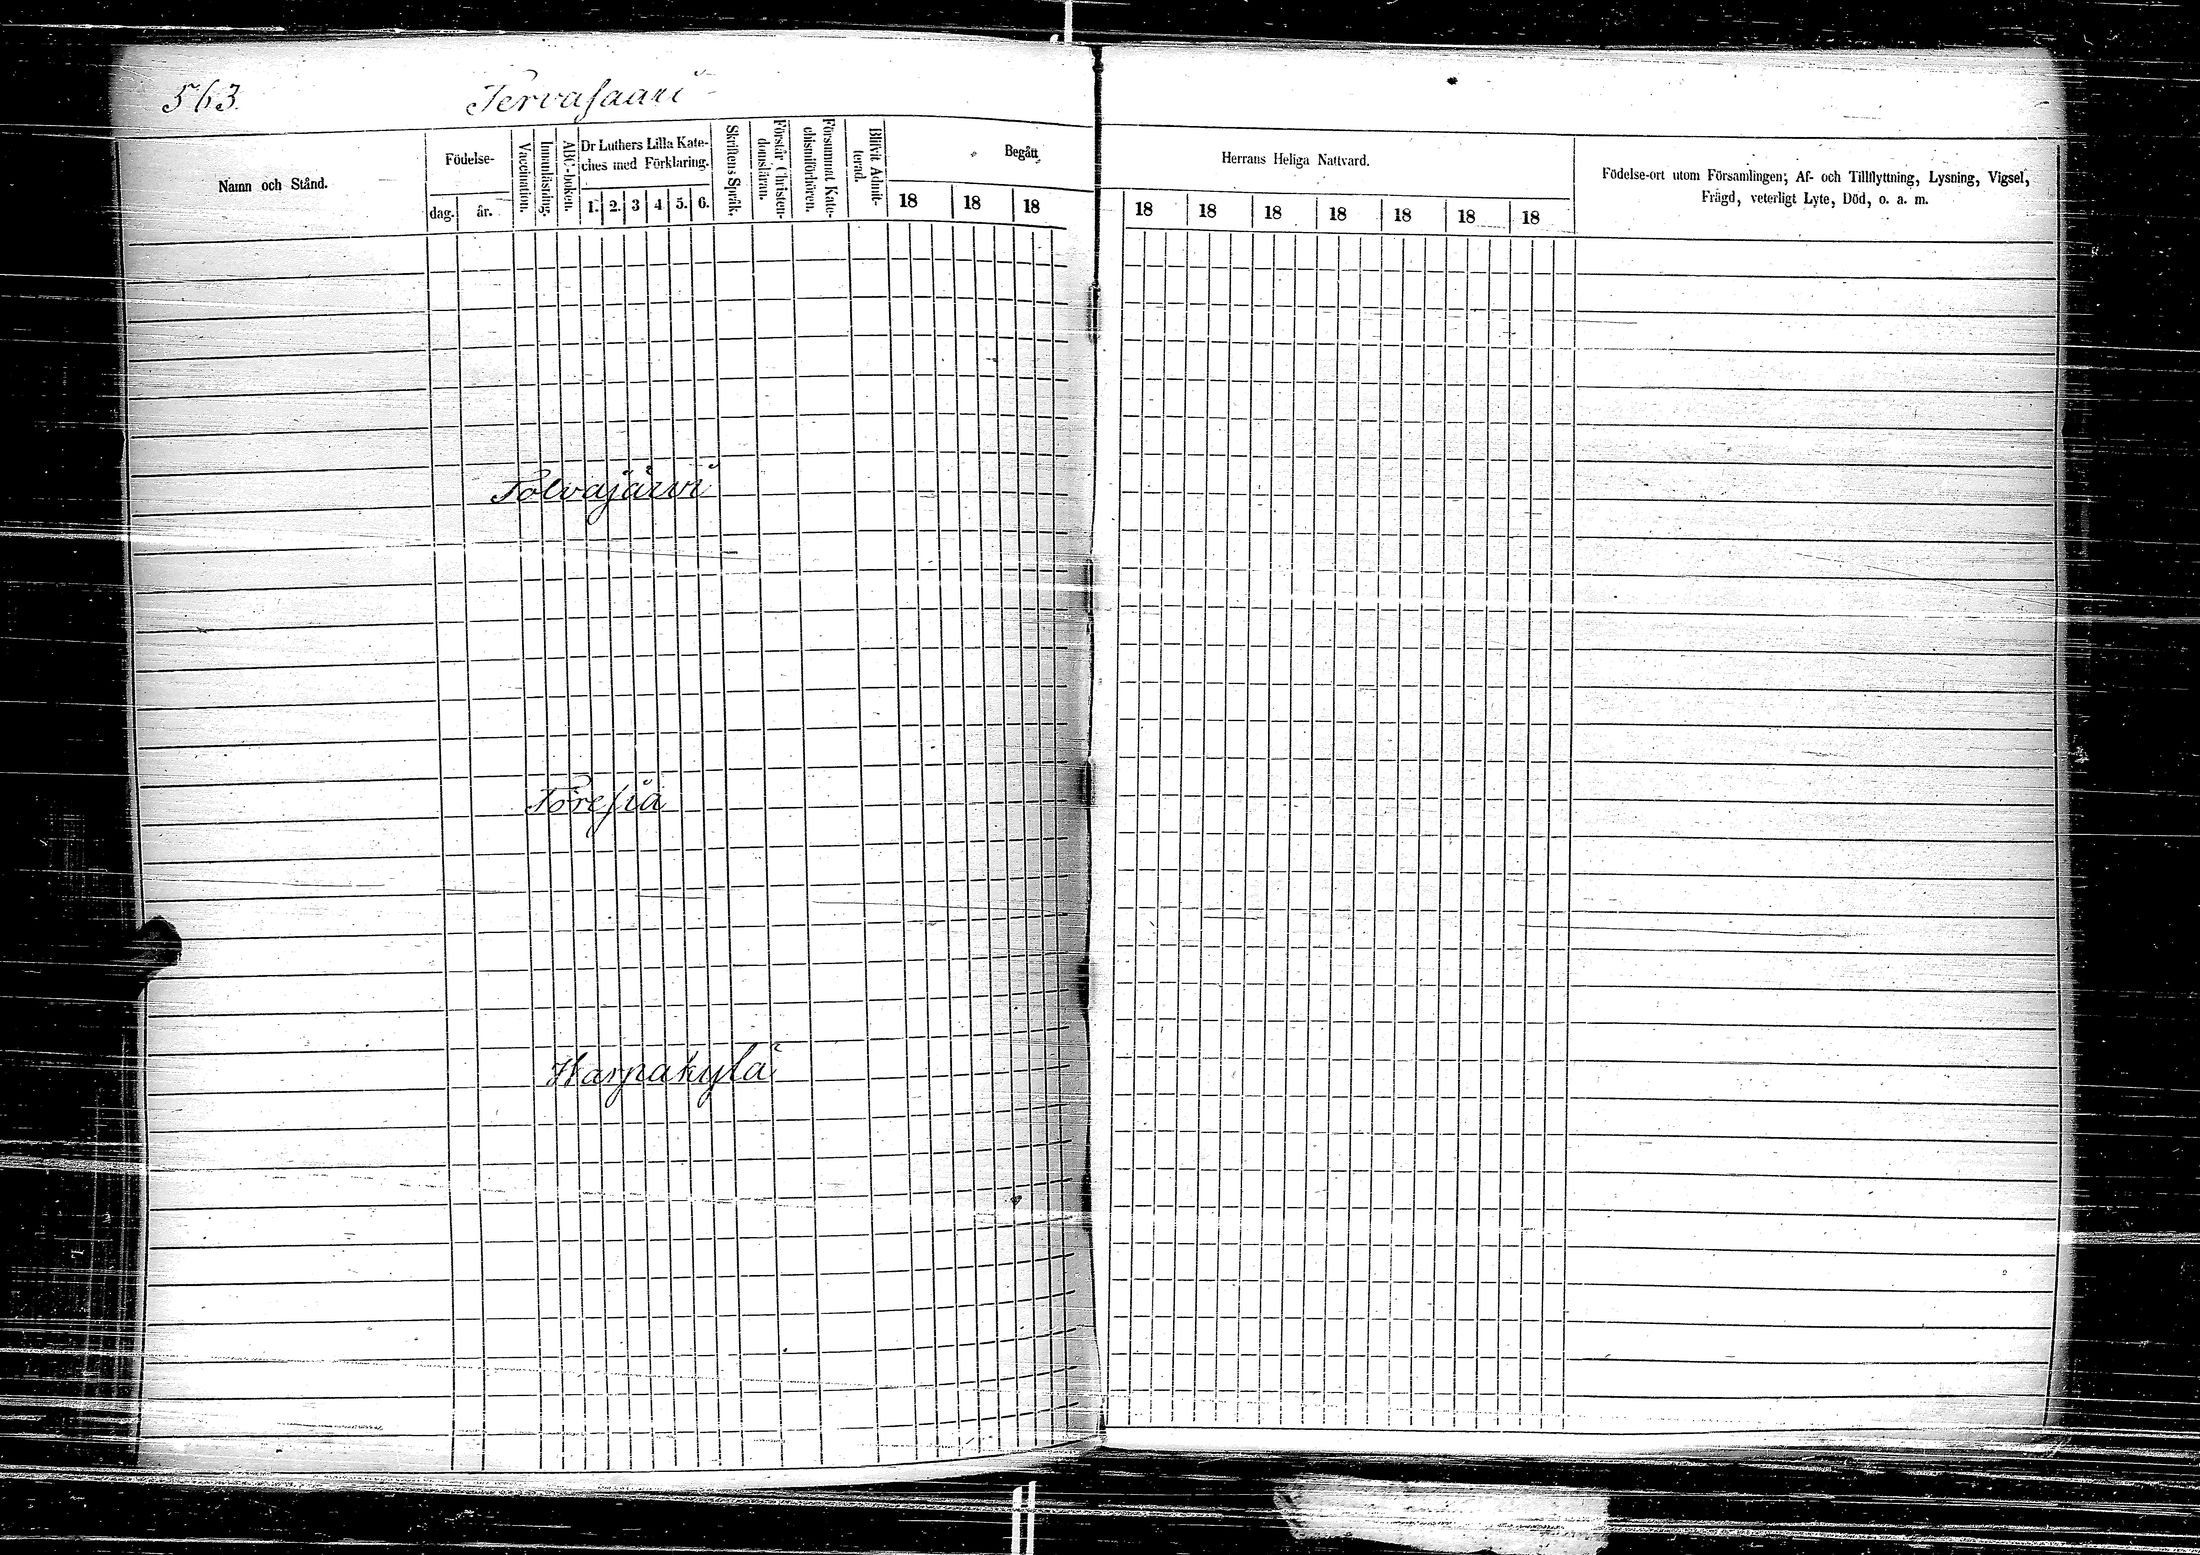 563.
Tervasaari
Namn och Stånd.
Födelse-
dag.
år.
Vaccination.
Innanläsning.
ABC-boken.
Dr Luthers Lilla Kate-
ches med Förklaring.
1. 2. 3 4 5. 6.
Skriftens Språk.
Förstår Christen-
domsläran.
Försummat Kate-
chismiförhören.
Blifvit Admit-
terad.
Begått
18 18 18
Herrans Heliga Nattvard.
18 18 18 18 18 18 18
Födelse-ort utom Församlingen; Af- och Tillflyttning, Lysning, Vigsel,
Frägd, veterligt Lyte, Död, o. a. m.
Tolvajärvi
Töresiä
Harpakylä